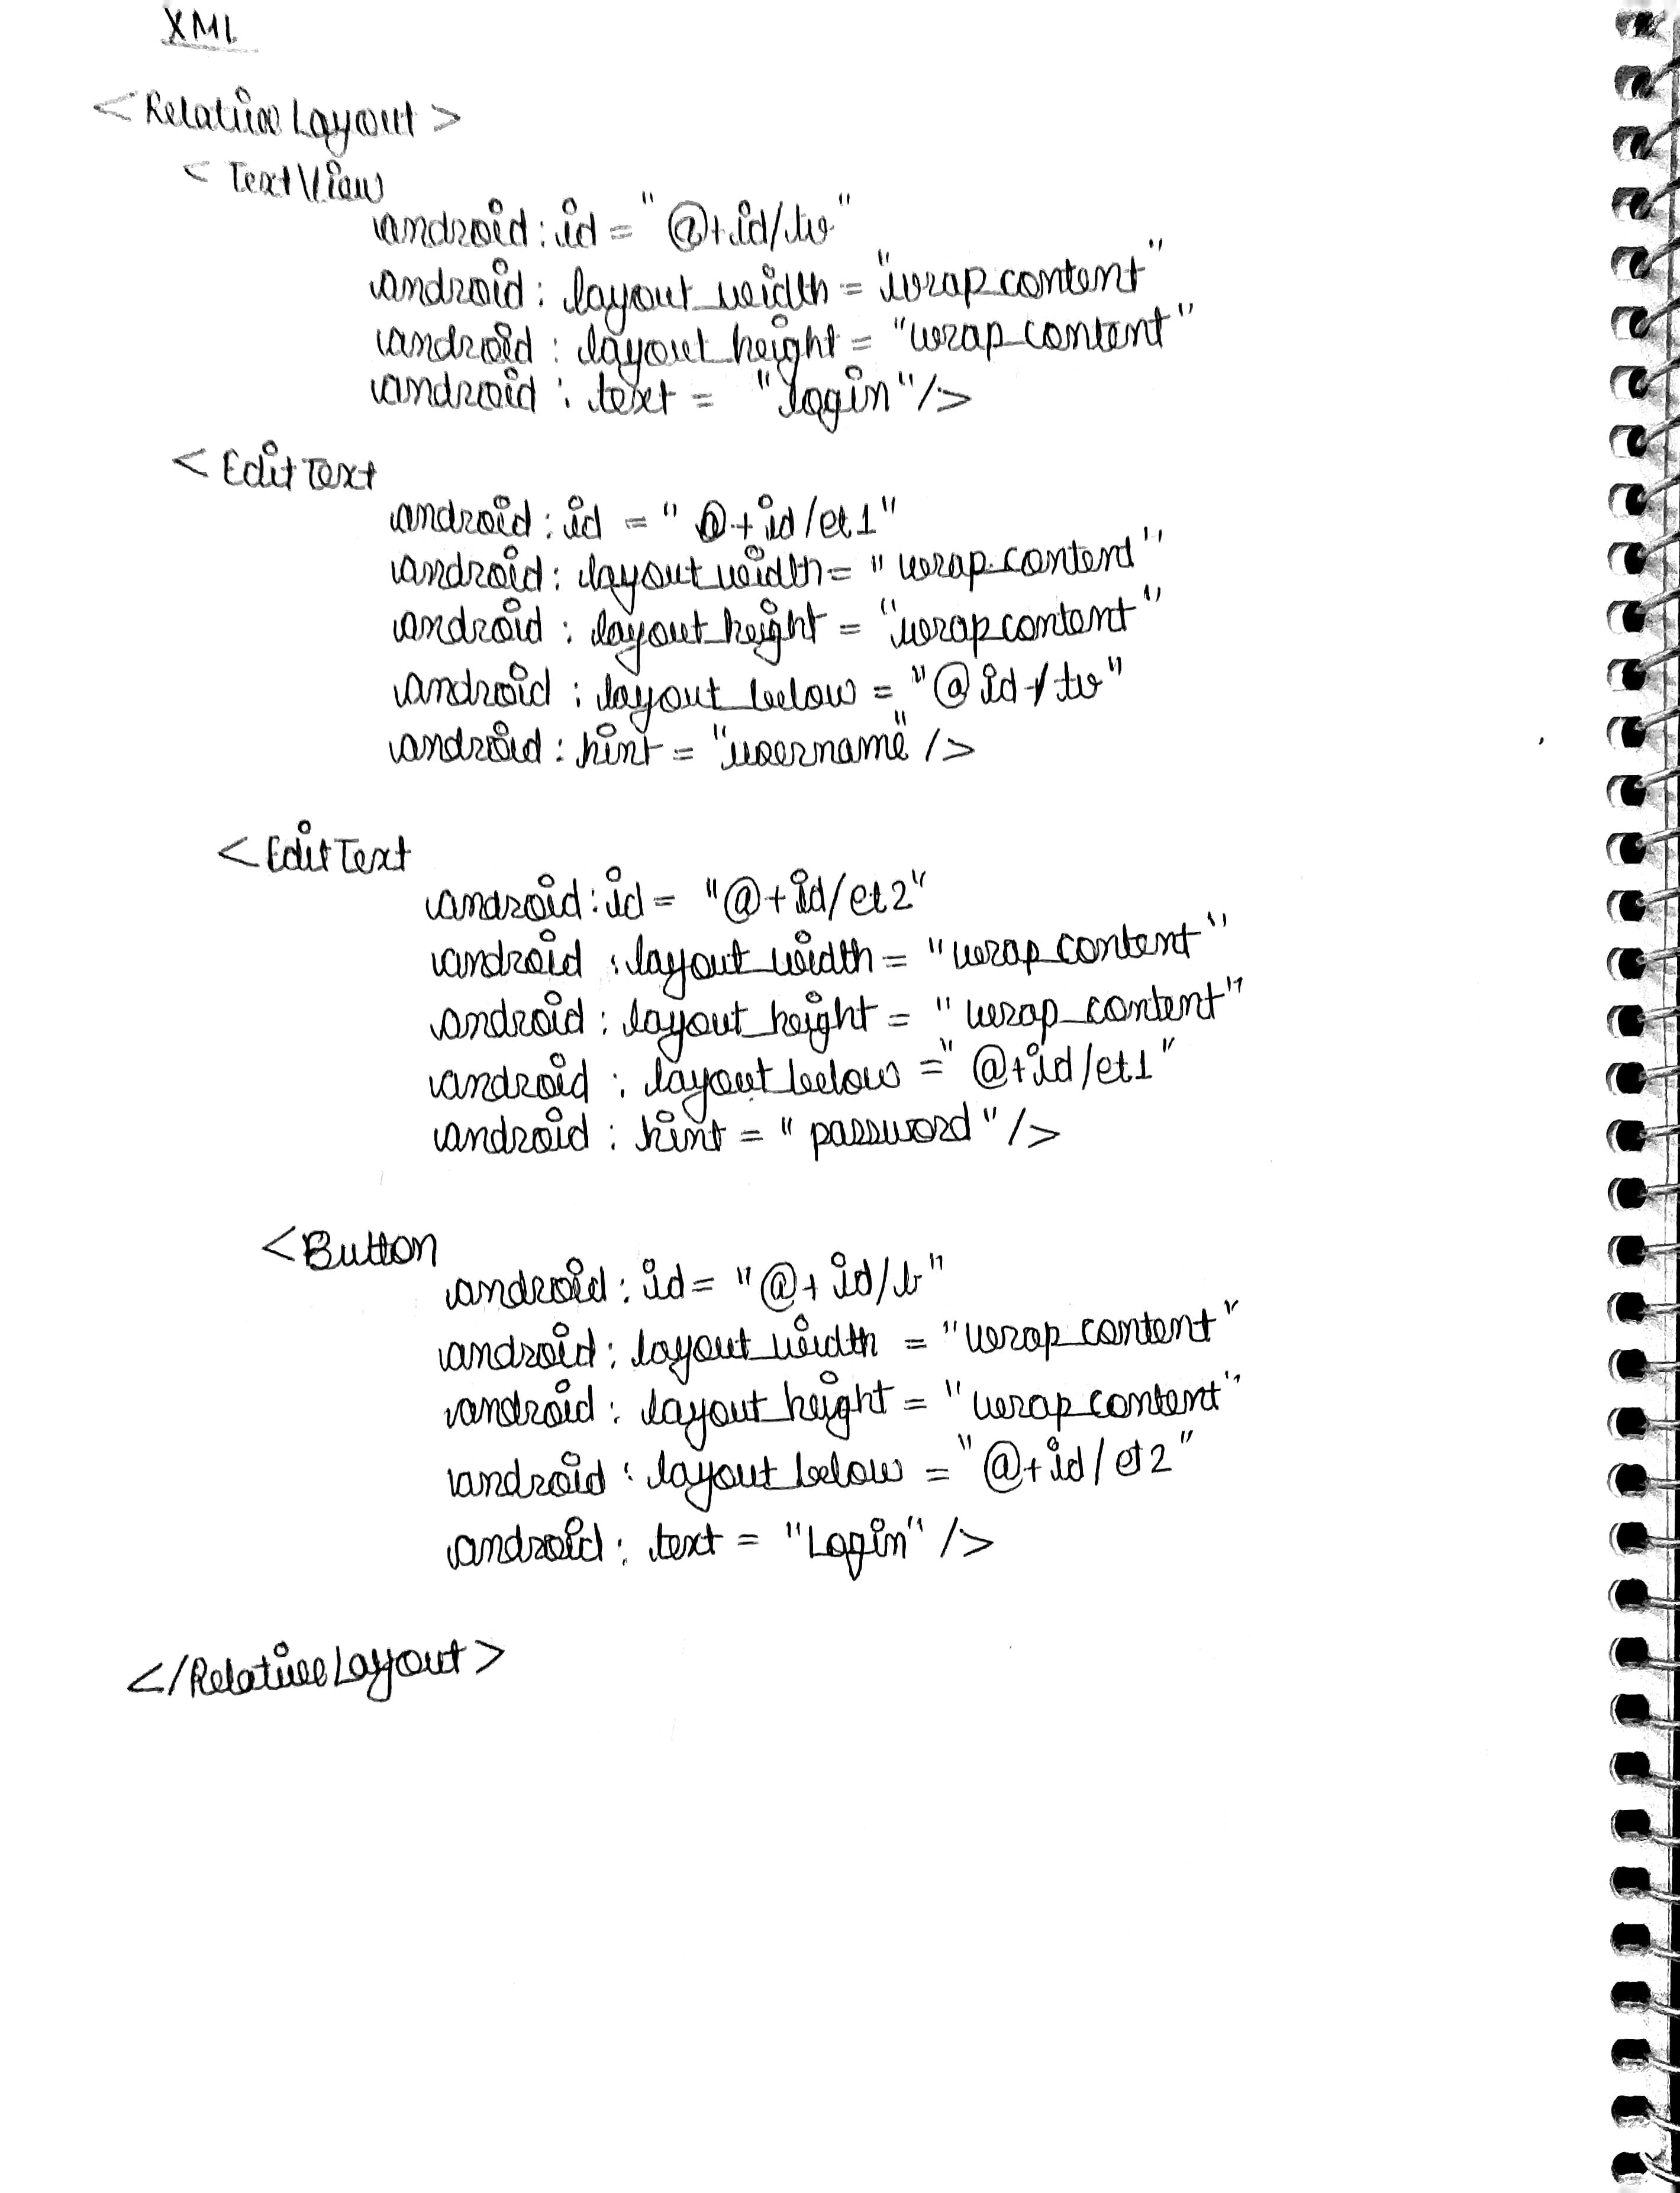 XML
<Relative Layout>
< TextView
android:id = "@+id/tv"
android: layout_width = "wrap_content"
android: layout_height = "wrap_content"
android: text = "login"/>
< EditText
android:id = "@+id/et1"
android: layout_width = "wrap_content"
android: layout_height = "wrap_content"
android: layout_below = "@id/tv"
android:hint = "username" />
<EditText
android:id = "@+id/et2"
android :layout_width = "wrap_content"
android: layout_height = "wrap_content"
android: layout_below = "@+id/et1"
android: hint = "password"/>
<Button
android: id = "@+id/b"
android: layout_width = "wrap_content"
android: layout_height = "wrap_content"
android: layout_below = "@+id/et2"
android: text = "Login" />
</RelativeLayout>